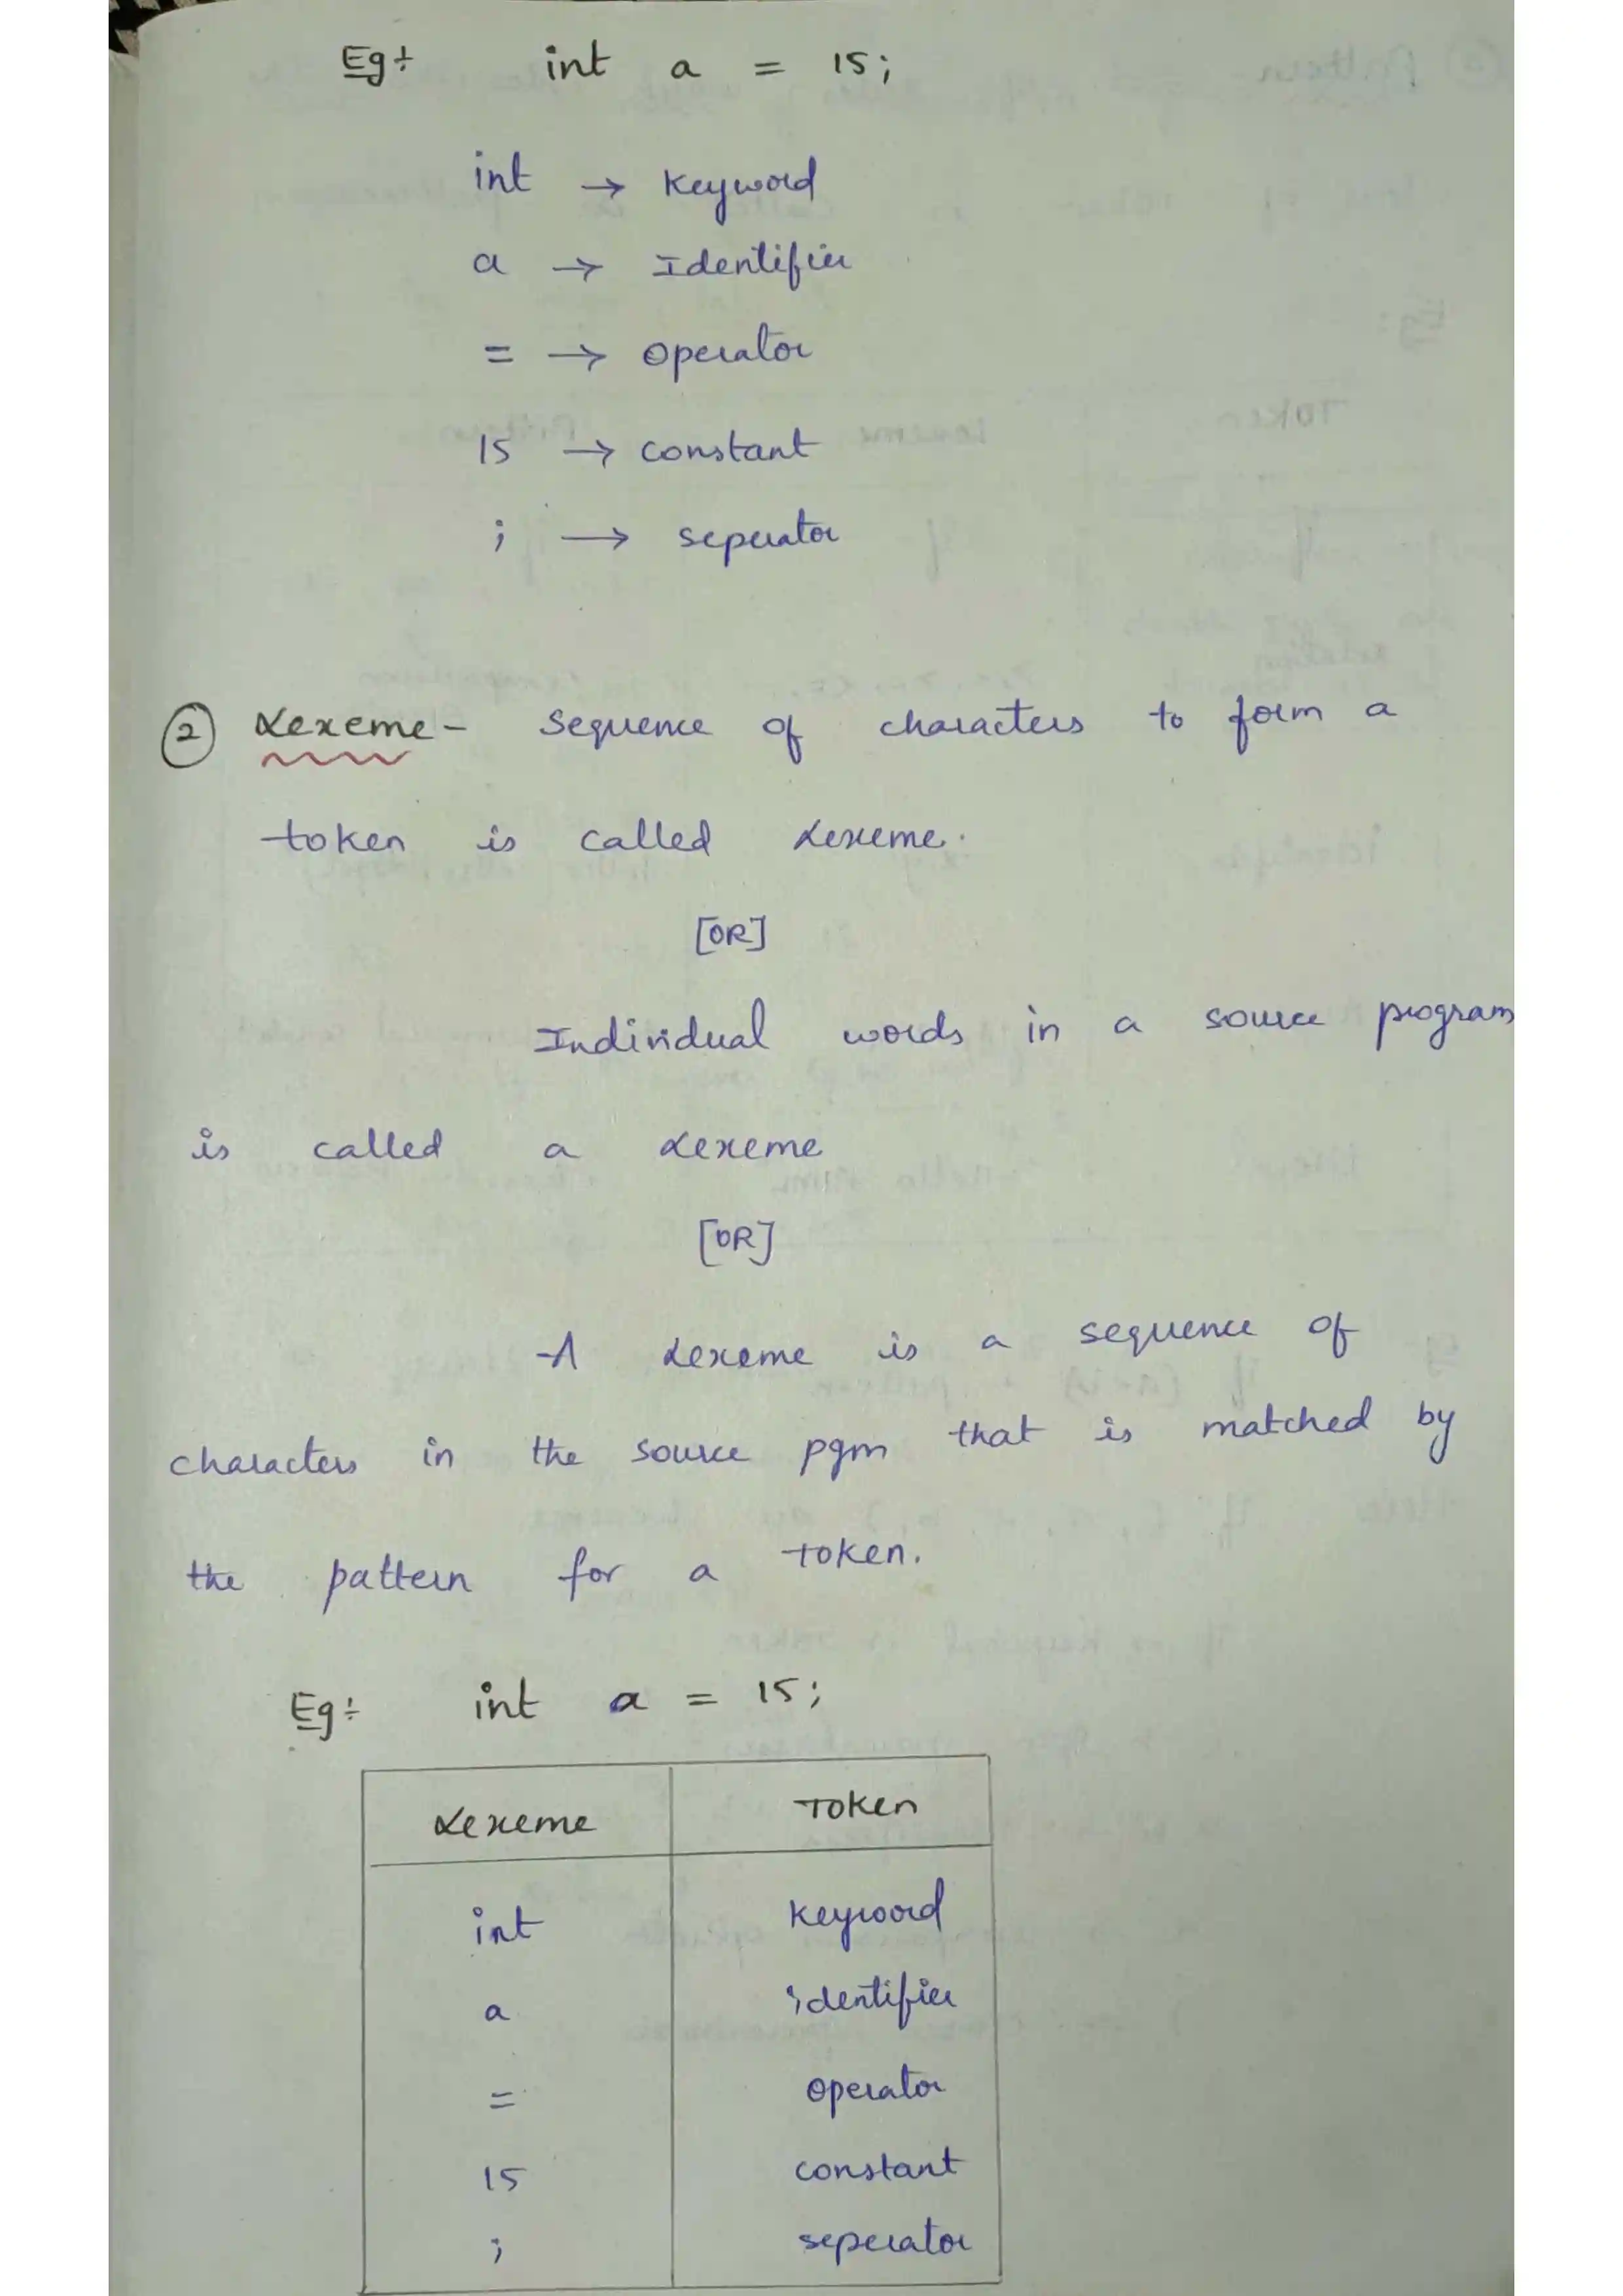 Eg÷ int a = 15;
int → Keyword
a → Identifier
= → operator
15 → constant
; → seperator
② Lexeme - Sequence of characters to form a
token is called Lexeme.
[OR]
Individual words in a source program
is called a Lexeme
[OR]
A Lexeme is a sequence of
characters in the source pgm that is matched by
the pattern for a token.
Eg÷ int a = 15;
Lexeme Token
int Keyword
a identifier
= operator
15 constant
; seperator